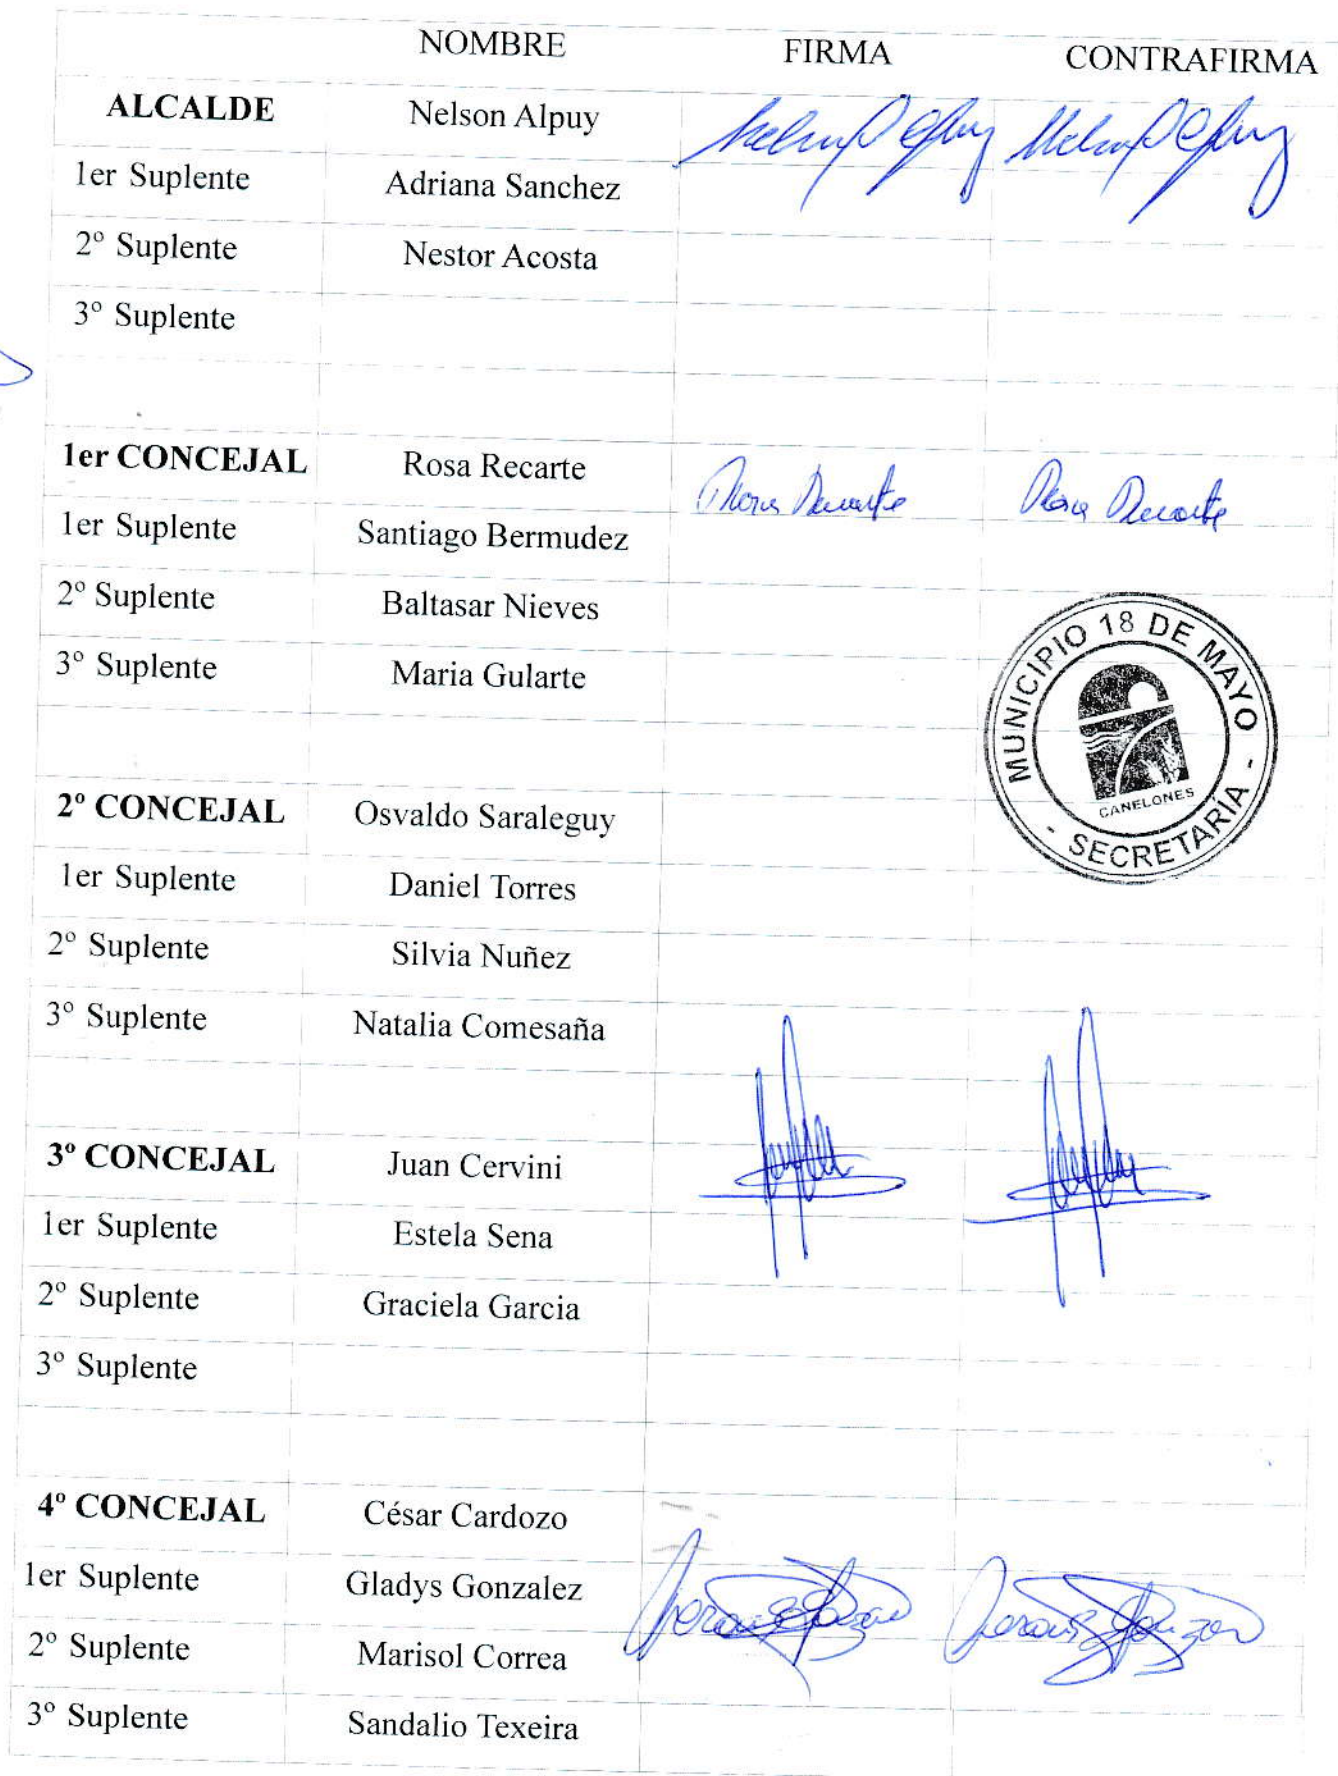 NOMBRE FIRMA CONTRAFIRMA
ALCALDE Nelson Alpuy
1er Suplente Adriana Sanchez
2º Suplente Nestor Acosta
3º Suplente
1er CONCEJAL Rosa Recarte
1er Suplente Santiago Bermudez
2º Suplente Baltasar Nieves
3º Suplente Maria Gularte
MUNICIPIO 18 DE MAYO
CANELONES
- SECRETARÍA -
2º CONCEJAL Osvaldo Saraleguy
1er Suplente Daniel Torres
2º Suplente Silvia Nuñez
3º Suplente Natalia Comesaña
3º CONCEJAL Juan Cervini
1er Suplente Estela Sena
2º Suplente Graciela Garcia
3º Suplente
4º CONCEJAL César Cardozo
1er Suplente Gladys Gonzalez
2º Suplente Marisol Correa
3º Suplente Sandalio Texeira